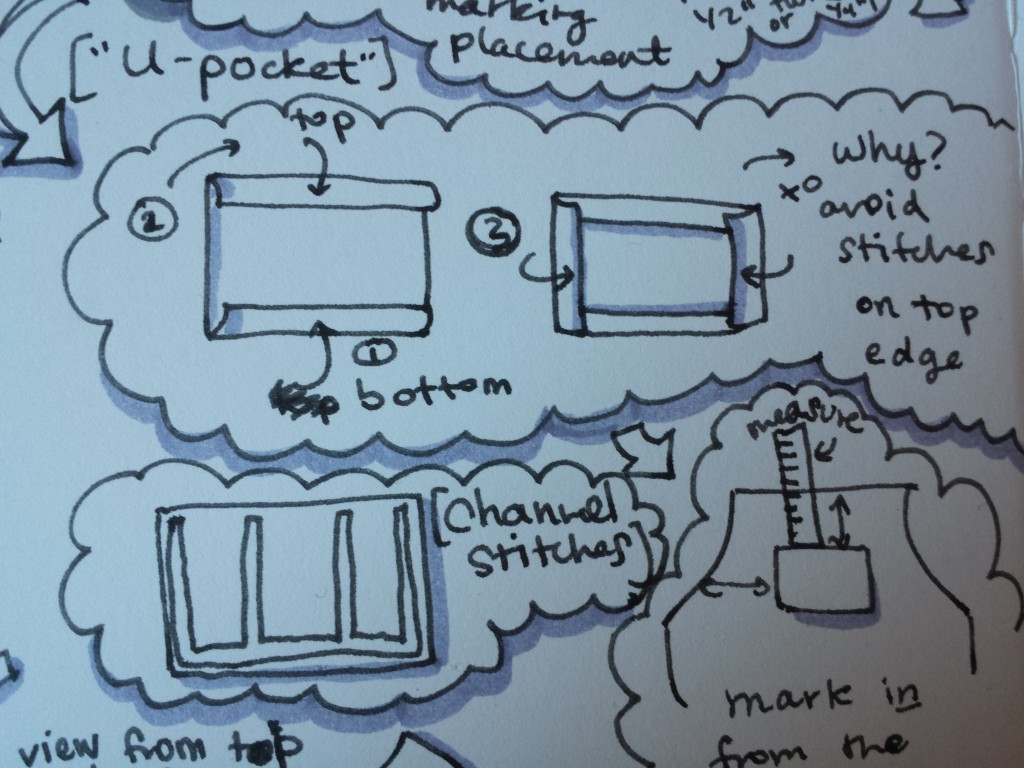 marking
placement
1/2"
or
1/4"
["U-pocket"]
top
2
3
1
bottom
why?
avoid
stitches
on top
edge
measure
[Channel
stitches]
mark in
from the
view from top